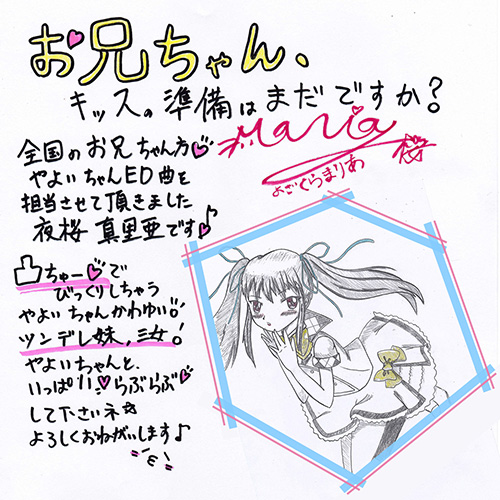 お兄ちゃん、
キッスの準備はまだですか?
Maria
桜
よざくらまりあ
全国のお兄ちゃん方
やよいちゃんED曲を
担当させて頂きました
夜桜 真里亜です♪
凸ちゅーで
びっくりしちゃう
やよいちゃんかわゆい!!
ツンデレ妹,三女!
やよいちゃんと、
いっぱいらぶらぶ
して下さいネ☆
よろしくおねがいします♪